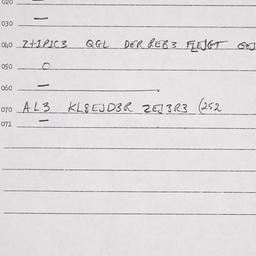 020
030 —
040 Z+1PIC3 QGL DER RER3 FLEJGT GEJ
050 O
060 —
070 AL3 KL8EJD3R ZEJ3R3 (252
071 —